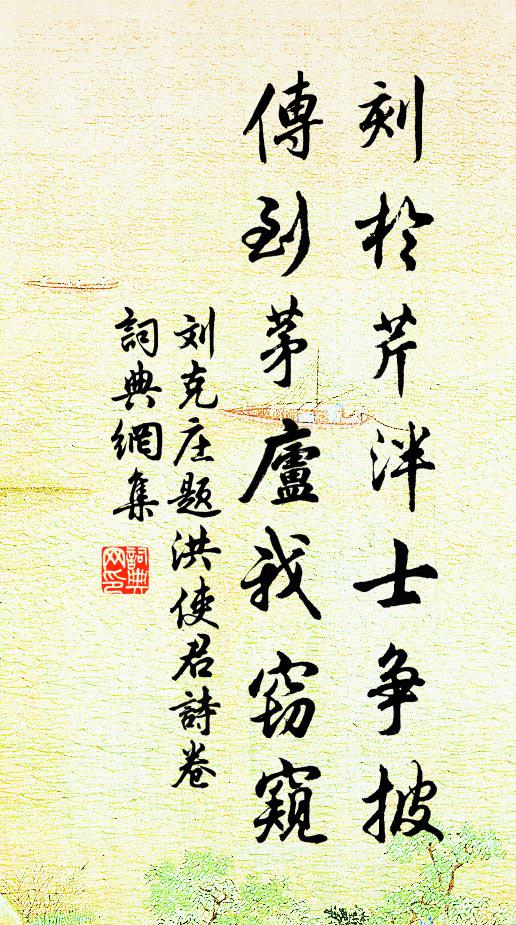 刻於芹泮士争披
傳到茅廬我窃窺
刘克庄题洪使君詩卷
詞典網集
詞典网印